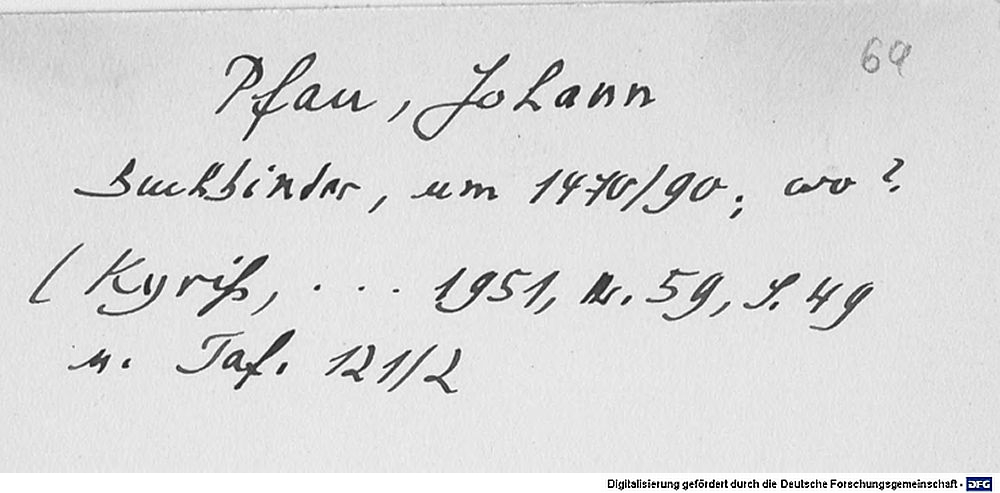 69
Pfau, Johann
Buchbinder, um 1470/90; wo?
(Kyriß, . . . 1951, Nr. 59, S. 49
u. Taf. 121/2
Digitalisierung gefördert durch die Deutsche Forschungsgemeinschaft - DFG